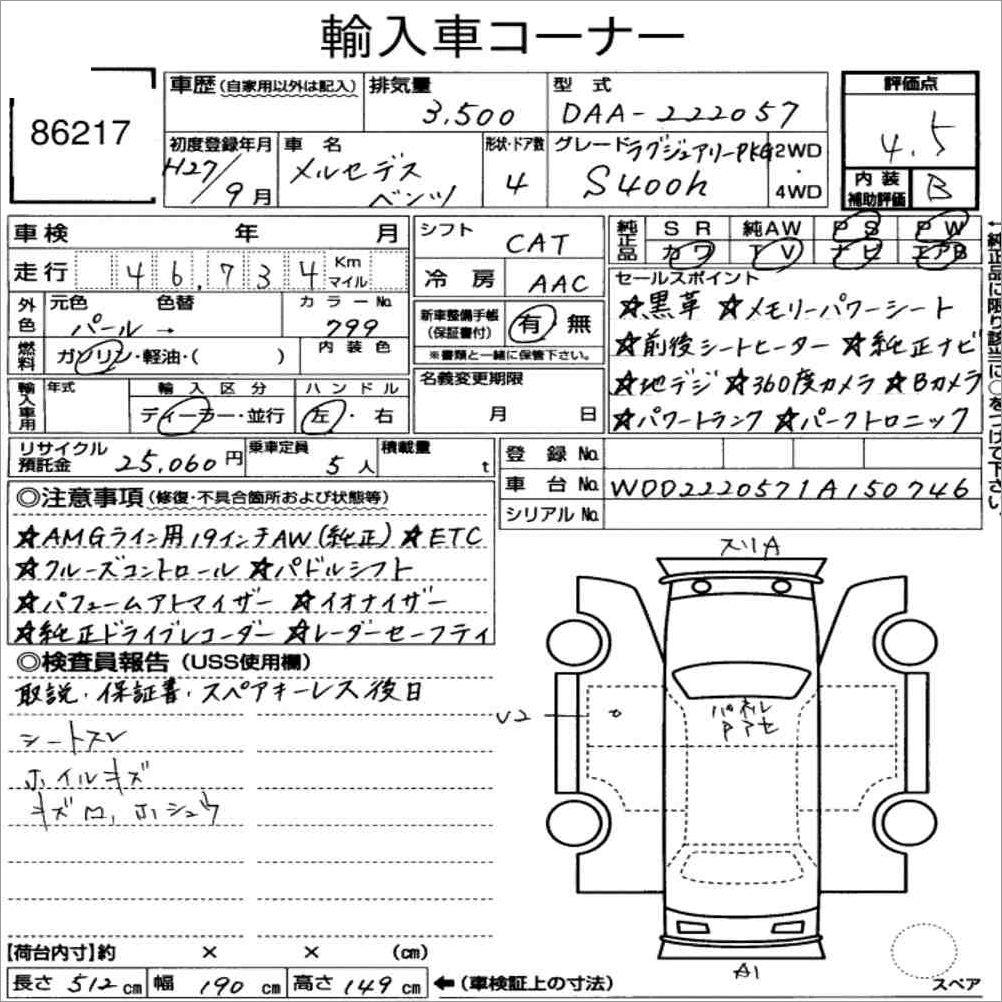 輸入車コーナー
86217
車歴(自家用以外は記入) 排気量 型式 評価点
3,500 DAA-222057
4.5
初度登録年月 車名 形状・ドア数 グレード ラグジュアリーPKG 2WD
H27/9月 メルセデスベンツ 4 S400h ・4WD
内装補助評価 B
車検 年 月 シフト CAT 純正品 SR 純AW PS PW
カワ TV ナビ エアB
走行 46,734 Km マイル 冷房 AAC
セールスポイント
外色 元色 色替 カラーNo.
パール → 799
新車整備手帳(保証書付) 有・無
※書類と一緒に保管下さい。
☆黒革 ☆メモリーパワーシート
☆前後シートヒーター ☆純正ナビ
☆地デジ ☆360度カメラ ☆Bカメラ
☆パワートランク ☆パークトロニック
燃料 ガソリン・軽油・( ) 内装色
輸入車用 年式 輸入区分 ハンドル 名義変更期限
ディーラー・並行 左・右 月 日
←純正品に限り該当に○をつけて下さい。
リサイクル預託金 25,060円 乗車定員 5人 積載量 t
登録No.
車台No. WDD2220571A150746
シリアルNo.
◎注意事項(修復・不具合箇所および状態等)
☆AMGライン用19インチAW(純正) ☆ETC
☆クルーズコントロール ☆パドルシフト
☆パフュームアトマイザー ☆イオナイザー
☆純正ドライブレコーダー ☆レーダーセーフティ
◎検査員報告(USS使用欄)
取説・保証書・スペアキーレス後日
シートスレ
ホイルキズ
キズ
スリA
U2
パネル
A1
スペア
【荷台内寸】約 × × (cm)
長さ 512 cm 幅 190 cm 高さ 149 cm ←(車検証上の寸法)